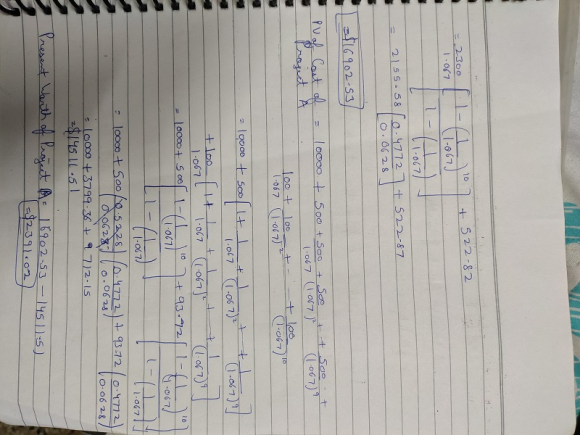 = 2300/1.067 [(1 - (1/1.067)^10)/(1 - (1/1.067))] + 522.82
= 2155.58 [0.4772/0.0628] + 522.87
= $16902.53
PV of Cost of Project A = 10000 + 500 + 500/1.067 + 500/(1.067)^2 + + 500/(1.067)^9 +
100/1.067 + 100/(1.067)^2 + - - + 100/(1.067)^10
= 10000 + 500 [1 + 1/1.067 + 1/(1.067)^2 + - - + 1/(1.067)^9]
+ 100/1.067 [1 + 1/1.067 + 1/(1.067)^2 + - - + 1/(1.067)^9]
= 10000 + 500 [(1 - (1/1.067)^10)/(1 - (1/1.067))] + 93.72 [(1 - (1/1.067)^10)/(1 - (1/1.067))]
= 10000 + 500 (0.4772/0.0628) + 93.72 (0.4772/0.0628)
= 10000 + 3799.36 + 712.15
= $14511.51
Present Worth of Project A = 16902.53 - 14511.51
= $2391.02